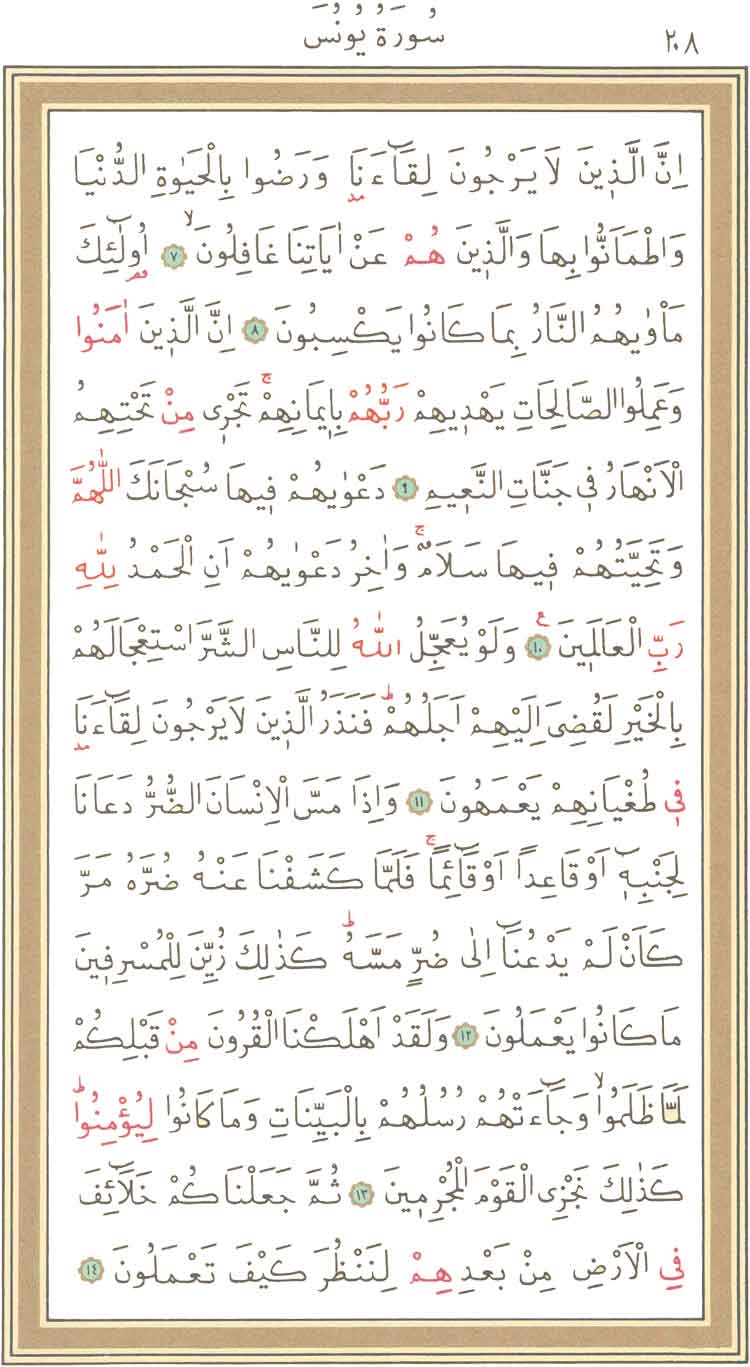 سُورَةُ يُونُسَ ٢٠٨
اِنَّ الَّذٖينَ لَا يَرْجُونَ لِقَٓاءَنَا وَرَضُوا بِالْحَيٰوةِ الدُّنْيَا
وَاطْمَاَنُّوا بِهَا وَالَّذٖينَ هُمْ عَنْ اٰيَاتِنَا غَافِلُونَۙ ﴿٧﴾ اُو۬لٰٓئِكَ
مَاْوٰيهُمُ النَّارُ بِمَا كَانُوا يَكْسِبُونَ ﴿٨﴾ اِنَّ الَّذٖينَ اٰمَنُوا
وَعَمِلُوا الصَّالِحَاتِ يَهْدٖيهِمْ رَبُّهُمْ بِاٖيمَانِهِمْۚ تَجْرٖى مِنْ تَحْتِهِمُ
الْاَنْهَارُ فٖى جَنَّاتِ النَّعٖيمِ ﴿٩﴾ دَعْوٰيهُمْ فٖيهَا سُبْحَانَكَ اللّٰهُمَّ
وَتَحِيَّتُهُمْ فٖيهَا سَلَامٌۚ وَاٰخِرُ دَعْوٰيهُمْ اَنِ الْحَمْدُ لِلّٰهِ
رَبِّ الْعَالَمٖينَ ﴿١٠﴾ وَلَوْ يُعَجِّلُ اللّٰهُ لِلنَّاسِ الشَّرَّ اسْتِعْجَالَهُمْ
بِالْخَيْرِ لَقُضِىَ اِلَيْهِمْ اَجَلُهُمْؕ فَنَذَرُ الَّذٖينَ لَا يَرْجُونَ لِقَٓاءَنَا
فٖى طُغْيَانِهِمْ يَعْمَهُونَ ﴿١١﴾ وَاِذَا مَسَّ الْاِنْسَانَ الضُّرُّ دَعَانَا
لِجَنْبِهٖٓ اَوْ قَاعِدًا اَوْ قَٓائِمًاۚ فَلَمَّا كَشَفْنَا عَنْهُ ضُرَّهُ مَرَّ
كَاَنْ لَمْ يَدْعُنَٓا اِلٰى ضُرٍّ مَسَّهُؕ كَذٰلِكَ زُيِّنَ لِلْمُسْرِفٖينَ
مَا كَانُوا يَعْمَلُونَ ﴿١٢﴾ وَلَقَدْ اَهْلَكْنَا الْقُرُونَ مِنْ قَبْلِكُمْ
لَمَّا ظَلَمُواۙ وَجَٓاءَتْهُمْ رُسُلُهُمْ بِالْبَيِّنَاتِ وَمَا كَانُوا لِيُؤْمِنُواؕ
كَذٰلِكَ نَجْزِى الْقَوْمَ الْمُجْرِمٖينَ ﴿١٣﴾ ثُمَّ جَعَلْنَاكُمْ خَلَٓائِفَ
فِى الْاَرْضِ مِنْ بَعْدِهِمْ لِنَنْظُرَ كَيْفَ تَعْمَلُونَ ﴿١٤﴾